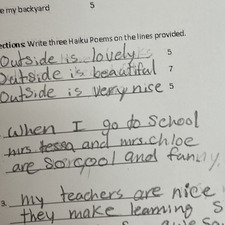 e my backyard 5
ections: Write three Haiku Poems on the lines provided.
Outside is lovely 5
Outside is beautiful 7
Outside is very nice 5
when I go to School
mrs tessa and mrs.chloe
are so cool and funny.
3. my teachers are nice
they make learning s